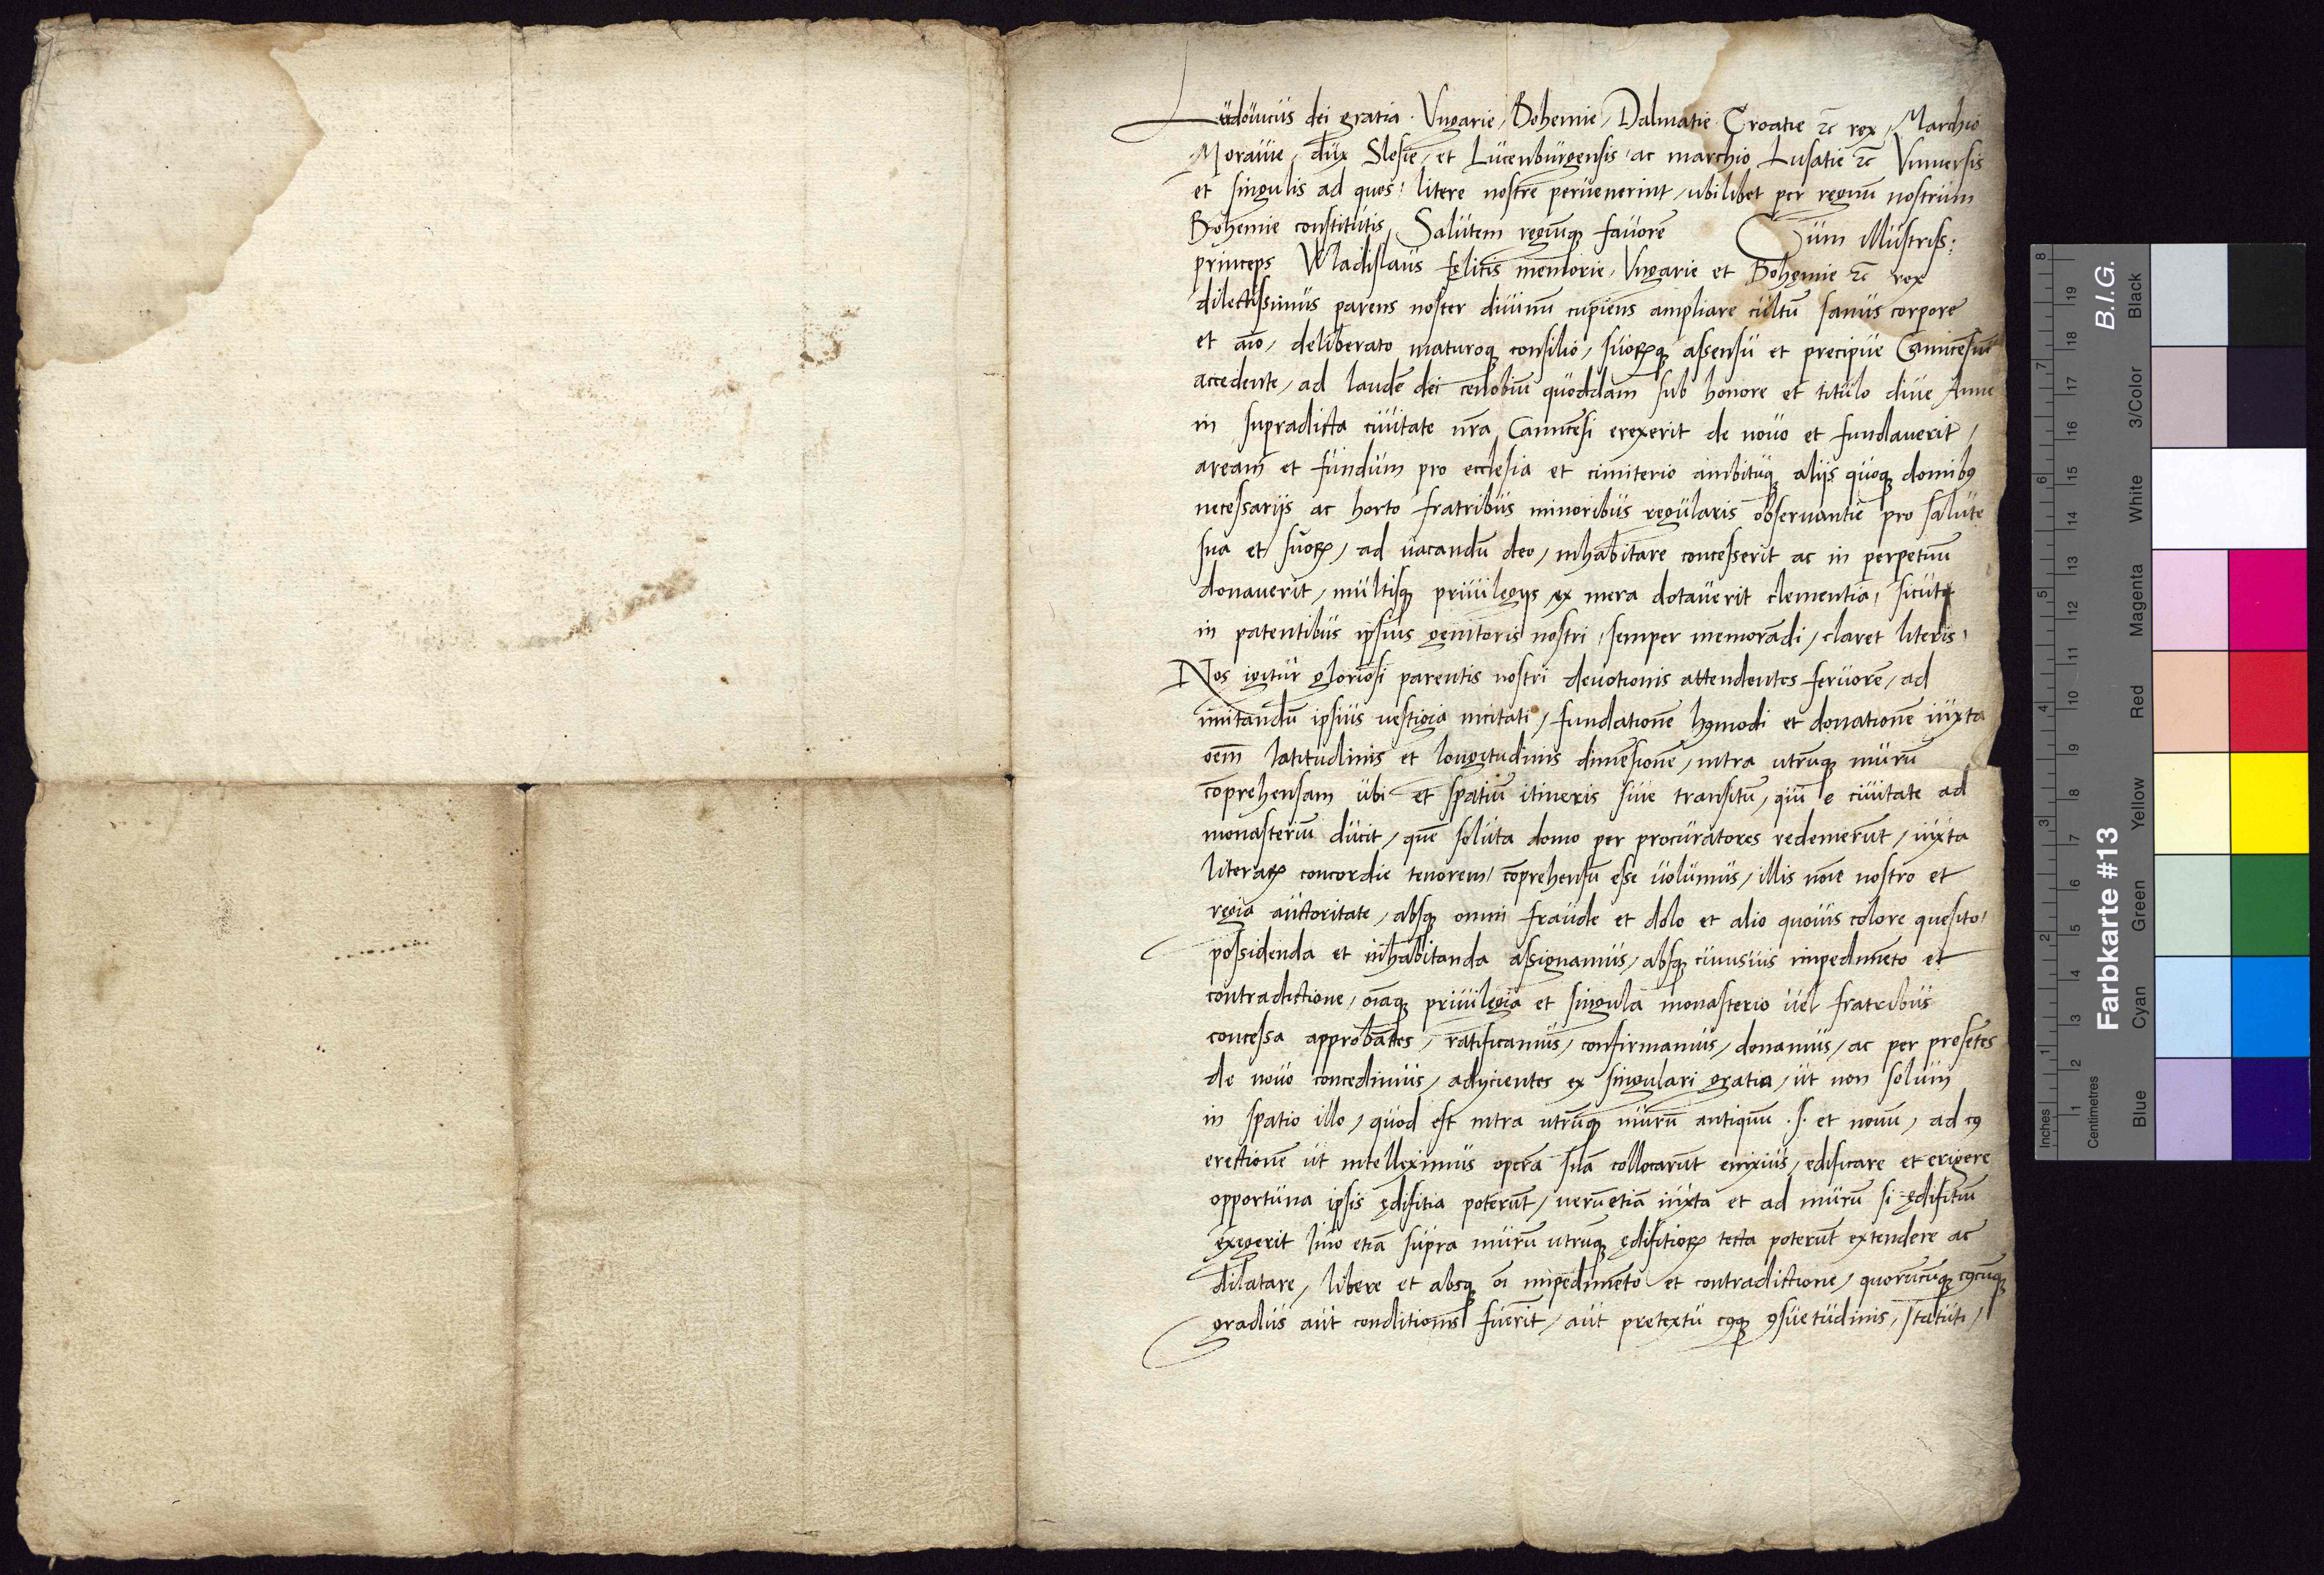 Ludouicus dei gratia Vngarie, Bohemie, Dalmatie Croatie ꝛc rex, Marchio
Morauie, dux Slesie, et Lucenburgensis, ac marchio Lusatie ꝛc Vniuersis
et singulis ad quos litere nostre peruenerint, ubilibet per regnū nostrum
Bohemie constitutis, Salutem regiūqꝫ fauorē Cum illustriss:
princeps Wladislaus felicis memorie, Vngarie et Bohemie ꝛc rex
dilectissimus parens noster diuinū cupiens ampliare cultū sanus corpore
et aīo, deliberato maturoqꝫ consilio, suorꝝqꝫ assensu et precipue Camicēsiū
accedente, ad laudē dei cenobiū quoddam sub honore et titulo diue Anne
in supradicta ciuitate nr̄a Camicēsi erexerit de nouo et fundauerit,
aream et fundum pro ecclesia et cimiterio ambituqꝫ alijs quoqꝫ domibꝰ
necessarijs ac horto fratribus minoribus regularis obseruantie pro salute
sua et suorꝝ, ad uacandū deo, inhabitare concesserit ac in perpetuū
donauerit, multisqꝫ priuilegijs ex mera dotauerit clementia, sicut
in patentibus ipsius genitoris nostri, semper memorādi, claret literis,
Nos igitur gloriosi parentis nostri deuotionis attendentes feruorē, ad
imitandū ipsius uestigia incitati, fundationē hꝰmodi et donationē iuxta
oēm latitudinis et longitudinis dimēsionē, intra utrūqꝫ murū
cōprehensam ubi et spatiū itineris siue transitū, qui e ciuitate ad
monasteriū ducit, quē soluta domo per procuratores redemerūt, iuxta
literarꝝ concordie tenorem, cōprehensū esse uolumus, illis noīe nostro et
regia auctoritate, absqꝫ omni fraude et dolo et alio quouis colore quesito,
possidenda et inhabitanda assignamus, absqꝫ cuiusuis impedimēto et
contradictione, oīaqꝫ priuilegia et singula monasterio uel fratribus
concessa approbātes, ratificamus, confirmamus, donamus, ac per presētes
de nouo concedimus, adijcientes ex singulari gratia, ut non solum
in spatio illo, quod est intra utrūqꝫ murū antiquū .s. et nouū, ad cꝰ
erectionē ut intelleximus operā suā collocarūt enixius, edificare et erigere
opportuna ipsis ędifitia poterūt, uerūetiā iuxta et ad murū si ędifitiū
exegerit Imo etiā supra murū utrūqꝫ ędifitiorꝝ tecta poterūt extendere ac
dilatare, libere et absqꝫ oī impedimēto et contradictione, quorūcūqꝫ cꝰcūqꝫ
gradus aut conditionis fuerit, aut pretextu cꝰqꝫ ꝯsuetudinis, statuti,
Inches
1 2 3 4 5 6 7 8
Centimetres
1 2 3 4 5 6 7 8 9 10 11 12 13 14 15 16 17 18 19
Farbkarte #13
B.I.G.
Blue Cyan Green Yellow Red Magenta White 3/Color Black